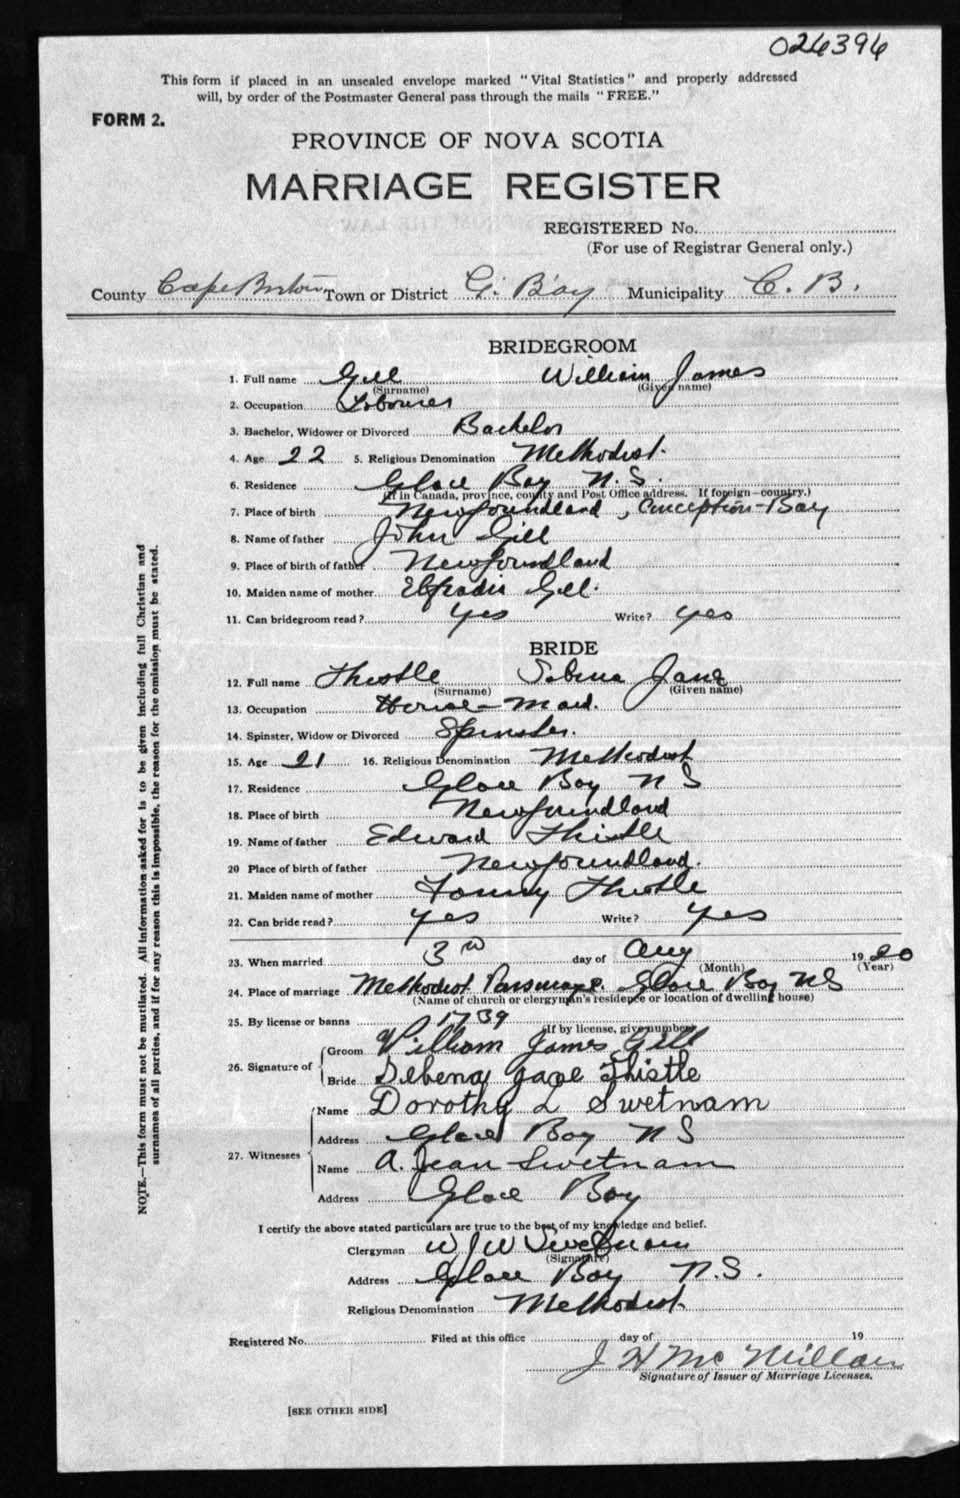 024394
This form if placed in an unsealed envelope marked "Vital Statistics" and properly addressed
will, by order of the Postmaster General pass through the mails "FREE."
FORM 2.
PROVINCE OF NOVA SCOTIA
MARRIAGE REGISTER
REGISTERED No.
(For use of Registrar General only.)
County Cape Breton Town or District G. Bay Municipality C. B.
BRIDEGROOM
1. Full name Gill William James
(Surname) (Given name)
2. Occupation Labourer
3. Bachelor, Widower or Divorced Bachelor
4. Age 22 5. Religious Denomination Methodist.
6. Residence Glace Bay N.S.
(If in Canada, province, county and Post Office address. If foreign—country.)
7. Place of birth Newfoundland, Conception-Bay
8. Name of father John Gill
9. Place of birth of father Newfoundland
10. Maiden name of mother Gill.
11. Can bridegroom read? yes Write? yes
BRIDE
12. Full name Thistle Sebena Jane
(Surname) (Given name)
13. Occupation House-Maid.
14. Spinster, Widow or Divorced Spinster.
15. Age 21 16. Religious Denomination Methodist
17. Residence Glace Bay N S
18. Place of birth Newfoundland
19. Name of father Edward Thistle
20 Place of birth of father Newfoundland.
21. Maiden name of mother Fanny Thistle
22. Can bride read? yes Write? yes
23. When married 3rd day of Aug 1920
(Month) (Year)
24. Place of marriage Methodist Parsonage. Glace Bay N S
(Name of church or clergyman's residence or location of dwelling house)
25. By license or banns 1739
(If by license, give number)
26. Signature of Groom William James Gill
Bride Sebena Jane Thistle
27. Witnesses Name Dorothy L Swetnam
Address Glace Bay N S
Name A. Jean Swetnam
Address Glace Bay
I certify the above stated particulars are true to the best of my knowledge and belief.
Clergyman W J W Swetnam
(Signature)
Address Glace Bay N.S.
Religious Denomination Methodist.
Registered No. Filed at this office day of 19
J H McMillan
Signature of Issuer of Marriage Licenses.
[SEE OTHER SIDE]
NOTE.—This form must not be mutilated. All information asked for is to be given including full Christian and
surnames of all parties, and if for any reason this is impossible, the reason for the omission must be stated.